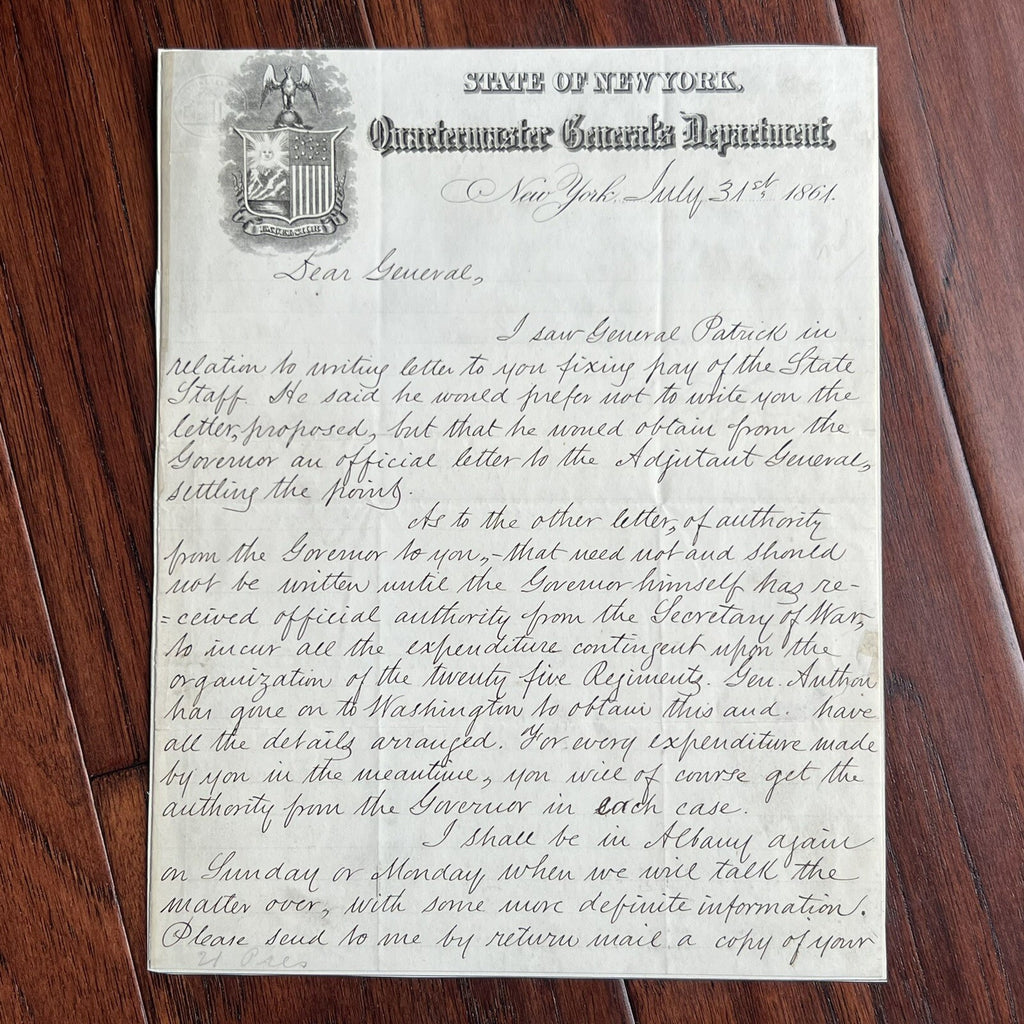 STATE OF NEW YORK.
Quartermaster General's Department,
New York, July 31st, 1861.
Dear General,
I saw General Patrick in
relation to writing letter to you fixing pay of the State
Staff. He said he would prefer not to write you the
letter, proposed, but that he would obtain from the
Governor an official letter to the Adjutant General,
settling the point.
As to the other letter, of authority
from the Governor to you, - that need not and should
not be written until the Governor himself has re-
=ceived official authority from the Secretary of War,
to incur all the expenditure contingent upon the
organization of the twenty five Regiments. Gen. Anthon
has gone on to Washington to obtain this and. have
all the details arranged. For every expenditure made
by you in the meantime, you will of course get the
authority from the Governor in each case.
I shall be in Albany again
on Sunday or Monday, when we will talk the
matter over, with some more definite information.
Please send to me by return mail a copy of your